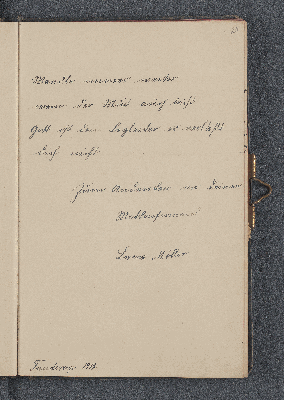 Wandle immer weiter
wenn der Weg auch nicht
Gott ist dein Begleiter er verläßt
dich nicht
Zum Andenken an deinen
Mitkonfirmand
Lorenz Möller
Tondern 1918